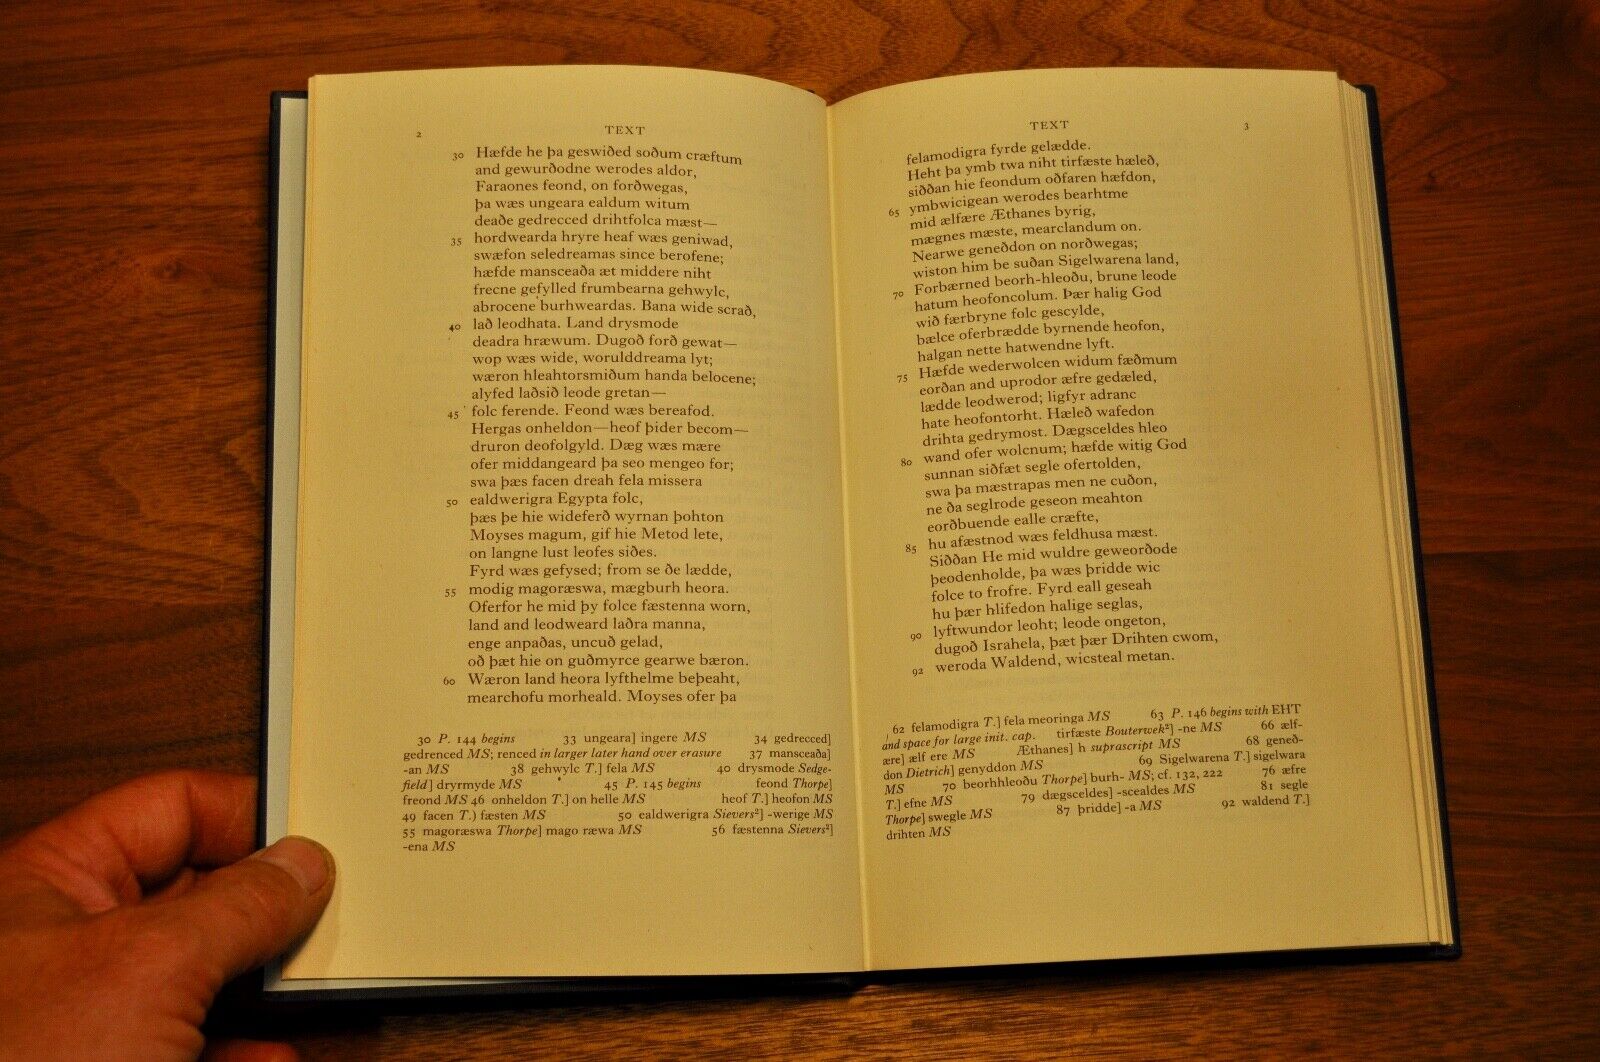 2 TEXT
30 Hæfde he þa geswiðed soðum cræftum
and gewurðodne werodes aldor,
Faraones feond, on forðwegas,
þa wæs ungeara ealdum witum
deaðe gedrecced drihtfolca mæst—
35 hordwearda hryre heaf wæs geniwad,
swæfon seledreamas since berofene;
hæfde mansceaða æt middere niht
frecne gefylled frumbearna gehwylc,
abrocene burhweardas. Bana wide scrað,
40 lað leodhata. Land drysmode
deadra hræwum. Dugoð forð gewat—
wop wæs wide, worulddreama lyt;
wæron hleahtorsmiðum handa belocene;
alyfed laðsið leode gretan—
45 folc ferende. Feond wæs bereafod.
Hergas onheldon—heof þider becom—
druron deofolgyld. Dæg wæs mære
ofer middangeard þa seo mengeo for;
swa þæs facen dreah fela missera
50 ealdwerigra Egypta folc,
þæs þe hie wideferð wyrnan þohton
Moyses magum, gif hie Metod lete,
on langne lust leofes siðes.
Fyrd wæs gefysed; from se ðe lædde,
55 modig magoræswa, mægburh heora.
Oferfor he mid þy folce fæstenna worn,
land and leodweard laðra manna,
enge anpaðas, uncuð gelad,
oð þæt hie on guðmyrce gearwe bæron.
60 Wæron land heora lyfthelme beþeaht,
mearchofu morheald. Moyses ofer þa
30 P. 144 begins 33 ungeara] ingere MS 34 gedrecced]
gedrenced MS; renced in larger later hand over erasure 37 mansceaða]
-an MS 38 gehwylc T.] fela MS 40 drysmode Sedge-
field] dryrmyde MS 45 P. 145 begins feond Thorpe]
freond MS 46 onheldon T.] on helle MS heof T.] heofon MS
49 facen T.) fæsten MS 50 ealdwerigra Sievers²] -werige MS
55 magoræswa Thorpe] mago ræwa MS 56 fæstenna Sievers²]
-ena MS
TEXT 3
felamodigra fyrde gelædde.
Heht þa ymb twa niht tirfæste hæleð,
siððan hie feondum oðfaren hæfdon,
65 ymbwicigean werodes bearhtme
mid ælfære Æthanes byrig,
mægnes mæste, mearclandum on.
Nearwe geneðdon on norðwegas;
wiston him be suðan Sigelwarena land,
70 Forbærned beorh-hleoðu, brune leode
hatum heofoncolum. Þær halig God
wið færbryne folc gescylde,
bælce oferbrædde byrnende heofon,
halgan nette hatwendne lyft.
75 Hæfde wederwolcen widum fæðmum
eorðan and uprodor æfre gedæled,
lædde leodwerod; ligfyr adranc
hate heofontorht. Hæleð wafedon
drihta gedrymost. Dægsceldes hleo
80 wand ofer wolcnum; hæfde witig God
sunnan siðfæt segle ofertolden,
swa þa mæstrapas men ne cuðon,
ne ða seglrode geseon meahton
eorðbuende ealle cræfte,
85 hu afæstnod wæs feldhusa mæst.
Siððan He mid wuldre geweorðode
þeodenholde, þa wæs þridde wic
folce to frofre. Fyrd eall geseah
hu þær hlifedon halige seglas,
90 lyftwundor leoht; leode ongeton,
dugoð Israhela, þæt þær Drihten cwom,
92 weroda Waldend, wicsteal metan.
62 felamodigra T.] fela meoringa MS 63 P. 146 begins with EHT
and space for large init. cap. tirfæste Bouterwek²] -ne MS 66 ælf-
ære] ælf ere MS Æthanes] h suprascript MS 68 geneð-
don Dietrich] genyddon MS 69 Sigelwarena T.] sigelwara
MS 70 beorhhleoðu Thorpe] burh- MS; cf. 132, 222 76 æfre
T.] efne MS 79 dægsceldes] -scealdes MS 81 segle
Thorpe] swegle MS 87 þridde] -a MS 92 waldend T.]
drihten MS